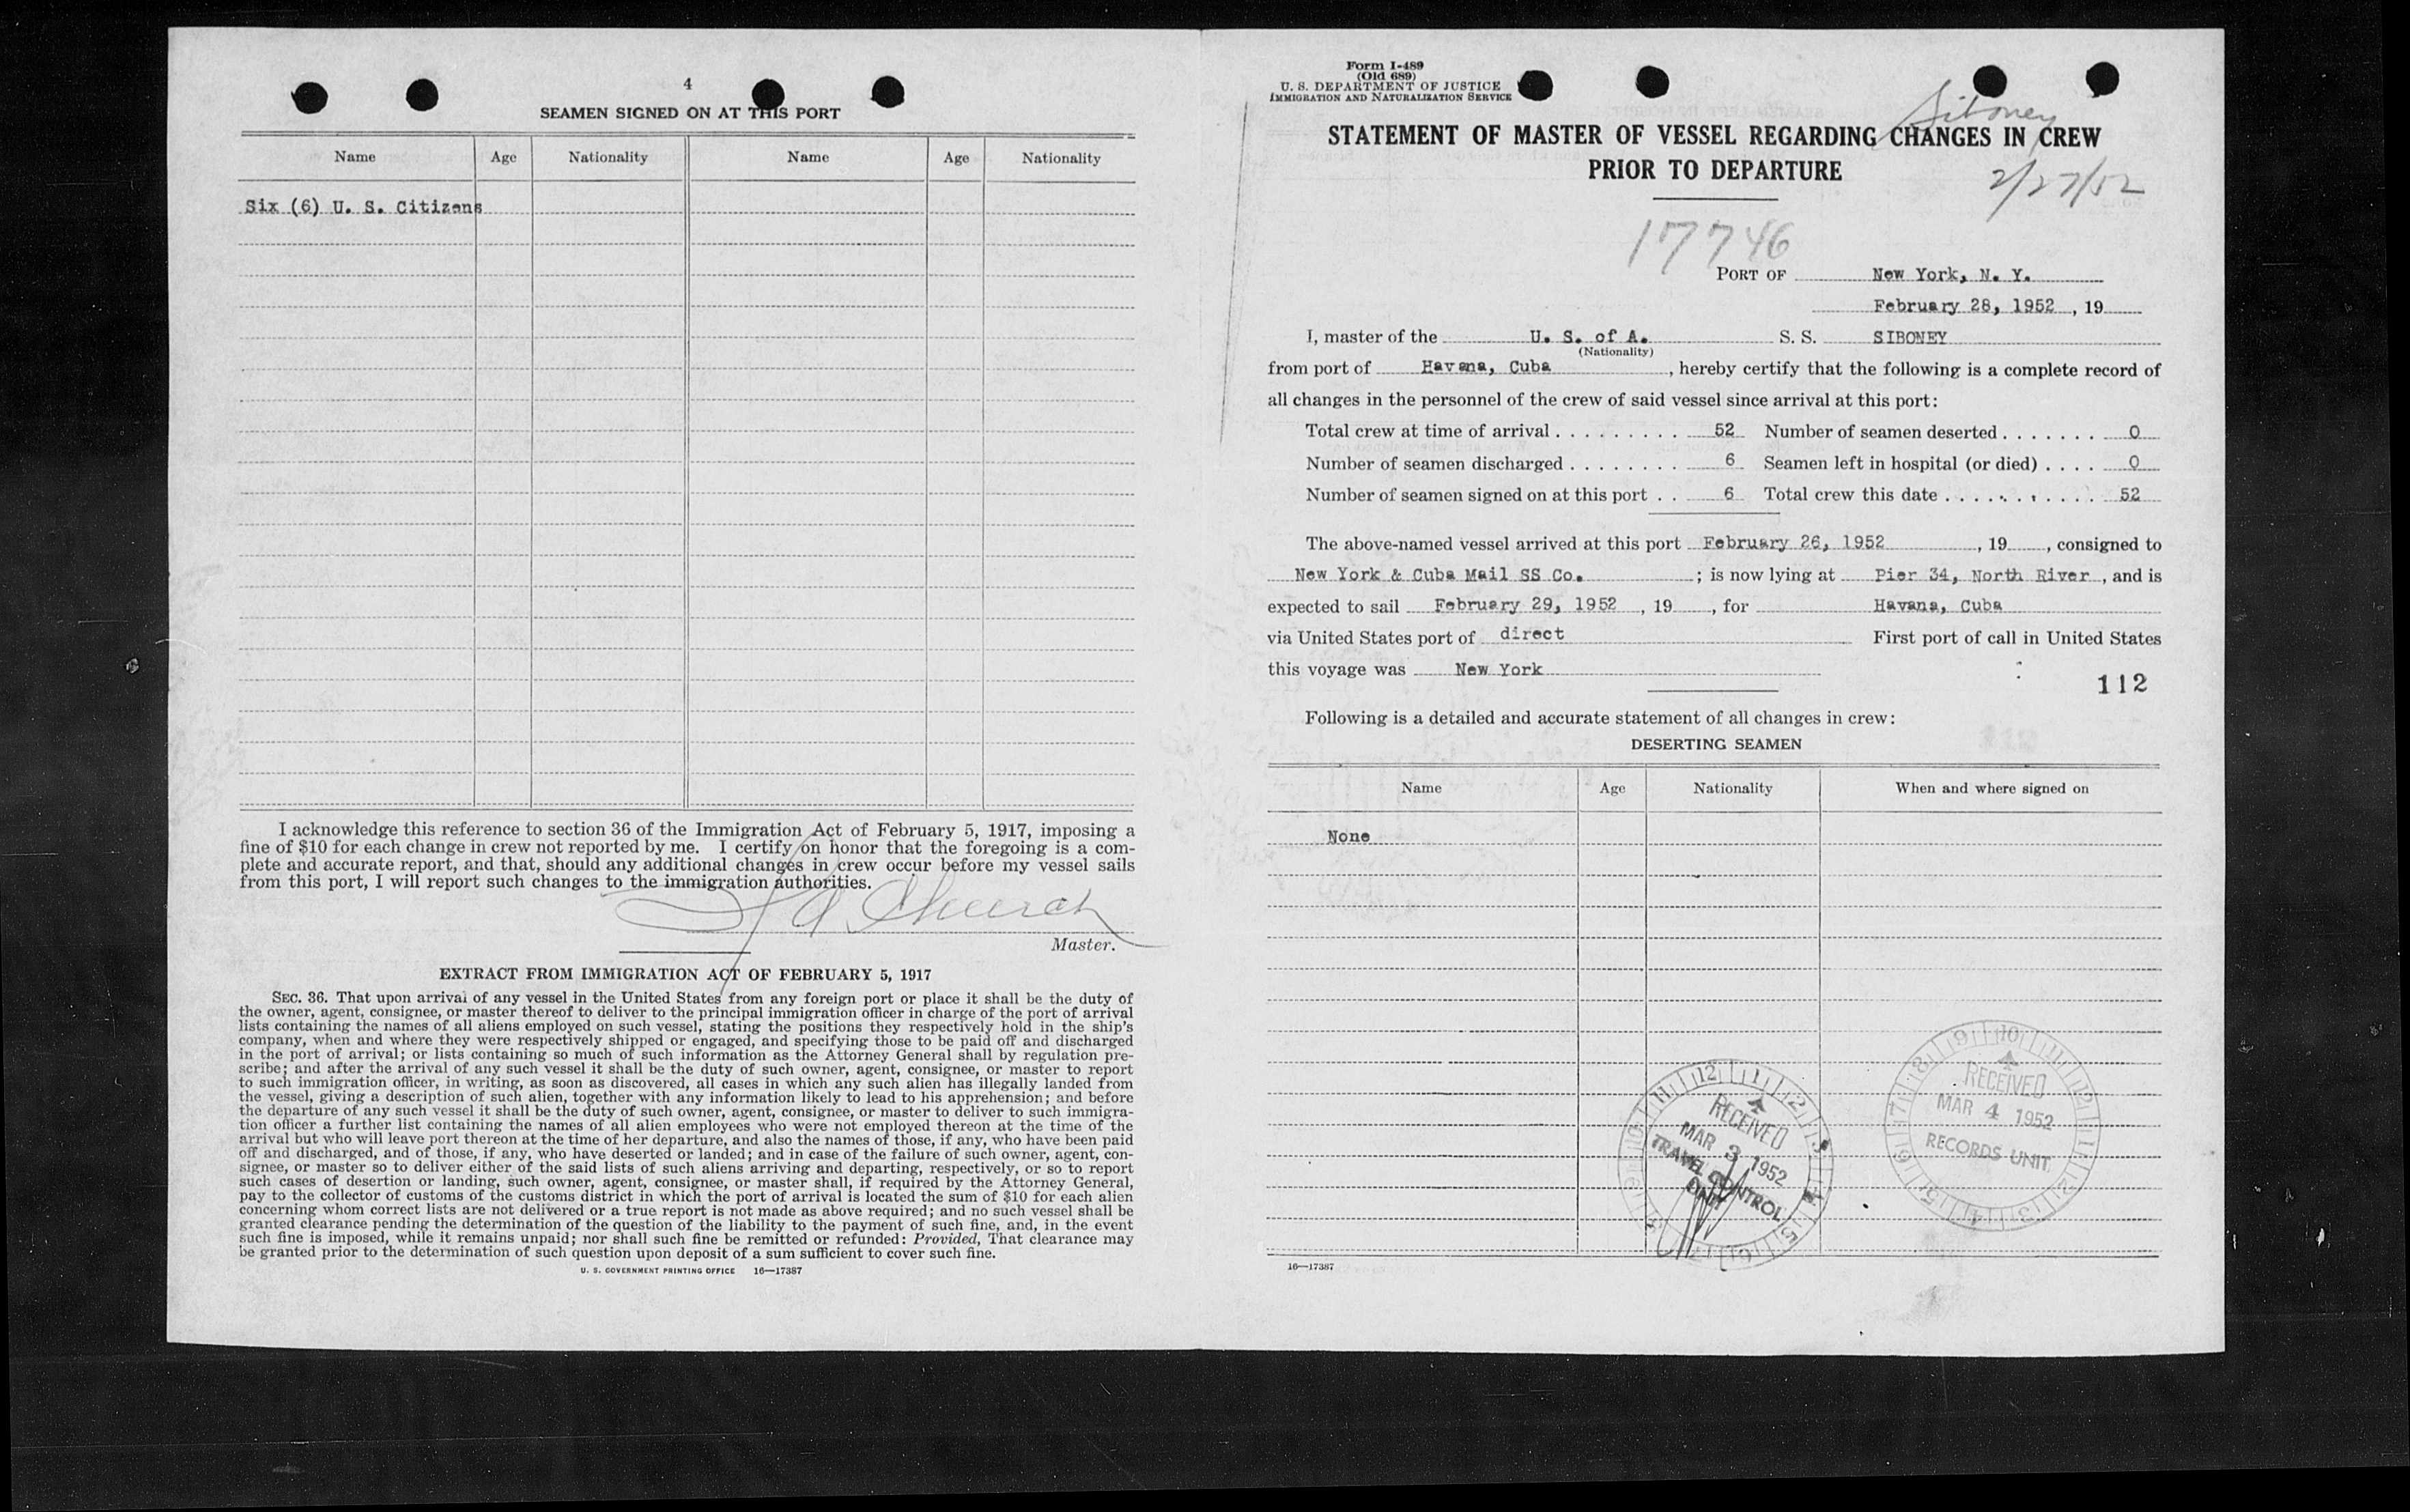 4
SEAMEN SIGNED ON AT THIS PORT
Name Age Nationality Name Age Nationality
Six (6) U. S. Citizens
I acknowledge this reference to section 36 of the Immigration Act of February 5, 1917, imposing a
fine of $10 for each change in crew not reported by me. I certify on honor that the foregoing is a com-
plete and accurate report, and that, should any additional changes in crew occur before my vessel sails
from this port, I will report such changes to the immigration authorities.
Church
Master.
EXTRACT FROM IMMIGRATION ACT OF FEBRUARY 5, 1917
SEC. 36. That upon arrival of any vessel in the United States from any foreign port or place it shall be the duty of
the owner, agent, consignee, or master thereof to deliver to the principal immigration officer in charge of the port of arrival
lists containing the names of all aliens employed on such vessel, stating the positions they respectively hold in the ship's
company, when and where they were respectively shipped or engaged, and specifying those to be paid off and discharged
in the port of arrival; or lists containing so much of such information as the Attorney General shall by regulation pre-
scribe; and after the arrival of any such vessel it shall be the duty of such owner, agent, consignee, or master to report
to such immigration officer, in writing, as soon as discovered, all cases in which any such alien has illegally landed from
the vessel, giving a description of such alien, together with any information likely to lead to his apprehension; and before
the departure of any such vessel it shall be the duty of such owner, agent, consignee, or master to deliver to such immigra-
tion officer a further list containing the names of all alien employees who were not employed thereon at the time of the
arrival but who will leave port thereon at the time of her departure, and also the names of those, if any, who have been paid
off and discharged, and of those, if any, who have deserted or landed; and in case of the failure of such owner, agent, con-
signee, or master so to deliver either of the said lists of such aliens arriving and departing, respectively, or so to report
such cases of desertion or landing, such owner, agent, consignee, or master shall, if required by the Attorney General,
pay to the collector of customs of the customs district in which the port of arrival is located the sum of $10 for each alien
concerning whom correct lists are not delivered or a true report is not made as above required; and no such vessel shall be
granted clearance pending the determination of the question of the liability to the payment of such fine, and, in the event
such fine is imposed, while it remains unpaid; nor shall such fine be remitted or refunded: Provided, That clearance may
be granted prior to the determination of such question upon deposit of a sum sufficient to cover such fine.
U. S. GOVERNMENT PRINTING OFFICE 16—17387
Form I-489
(Old 689)
U. S. DEPARTMENT OF JUSTICE
IMMIGRATION AND NATURALIZATION SERVICE
Siboney
STATEMENT OF MASTER OF VESSEL REGARDING CHANGES IN CREW
PRIOR TO DEPARTURE
2/27/52
17746
PORT OF New York, N. Y.
February 28, 1952 , 19
I, master of the U. S. of A. S. S. SIBONEY
(Nationality)
from port of Havana, Cuba , hereby certify that the following is a complete record of
all changes in the personnel of the crew of said vessel since arrival at this port:
Total crew at time of arrival . . . . . . . . . 52 Number of seamen deserted . . . . . . . 0
Number of seamen discharged . . . . . . . . 6 Seamen left in hospital (or died) . . . . 0
Number of seamen signed on at this port . . 6 Total crew this date . . . . . . . . . . 52
The above-named vessel arrived at this port February 26, 1952 , 19 , consigned to
New York & Cuba Mail SS Co. ; is now lying at Pier 34, North River , and is
expected to sail February 29, 1952 , 19 , for Havana, Cuba
via United States port of direct First port of call in United States
this voyage was New York
112
Following is a detailed and accurate statement of all changes in crew:
DESERTING SEAMEN
Name Age Nationality When and where signed on
None
RECEIVED
MAR 3 1952
TRAVEL CONTROL
UNIT
RECEIVED
MAR 4 1952
RECORDS UNIT
16—17387